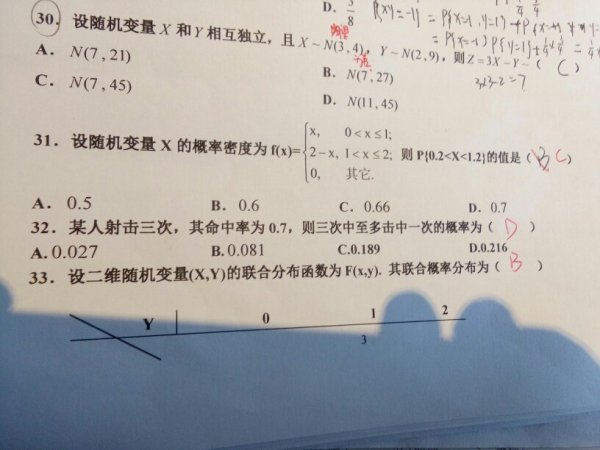 D. 3/8
P{XY=-1} = P{X=1, Y=-1} + P{X=-1,
30. 设随机变量 X 和 Y 相互独立，且 X ~ N(3,4)，Y ~ N(2,9)，则 Z = 3X - Y ~ ( C )
期望
方差
3×3-2=7
A. N(7,21)
B. N(7,27)
C. N(7,45)
D. N(11,45)
31. 设随机变量 X 的概率密度为 f(x)= { x, 0<x≤1; 2-x, 1<x≤2; 0, 其它. 则 P{0.2<X<1.2}的值是 ( B C )
A. 0.5 B. 0.6 C. 0.66 D. 0.7
32. 某人射击三次，其命中率为 0.7，则三次中至多击中一次的概率为 ( D )
A. 0.027 B. 0.081 C.0.189 D.0.216
33. 设二维随机变量(X,Y)的联合分布函数为 F(x,y). 其联合概率分布为 ( B )
Y 0 1 2
3